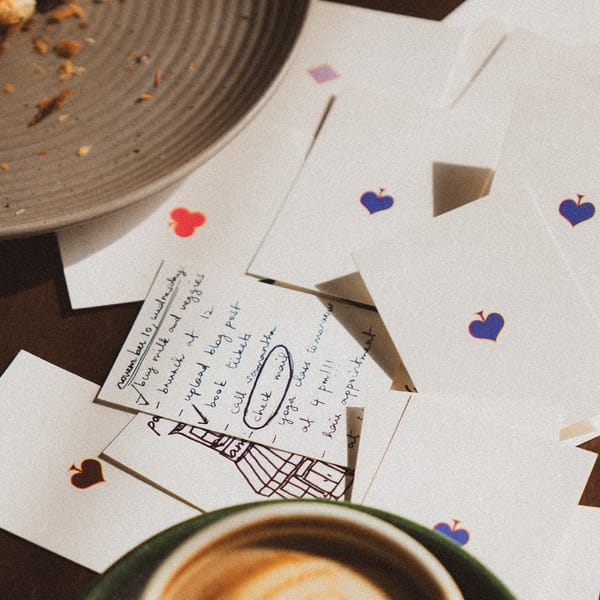 november 10 wednesday
✓ buy milk and veggies
- brunch at 12
- upload blog post
✓ book tickets
- call samantha
- check mail
- yoga class tomorrow
at 4 pm!!!
- hair appointment
at
pa